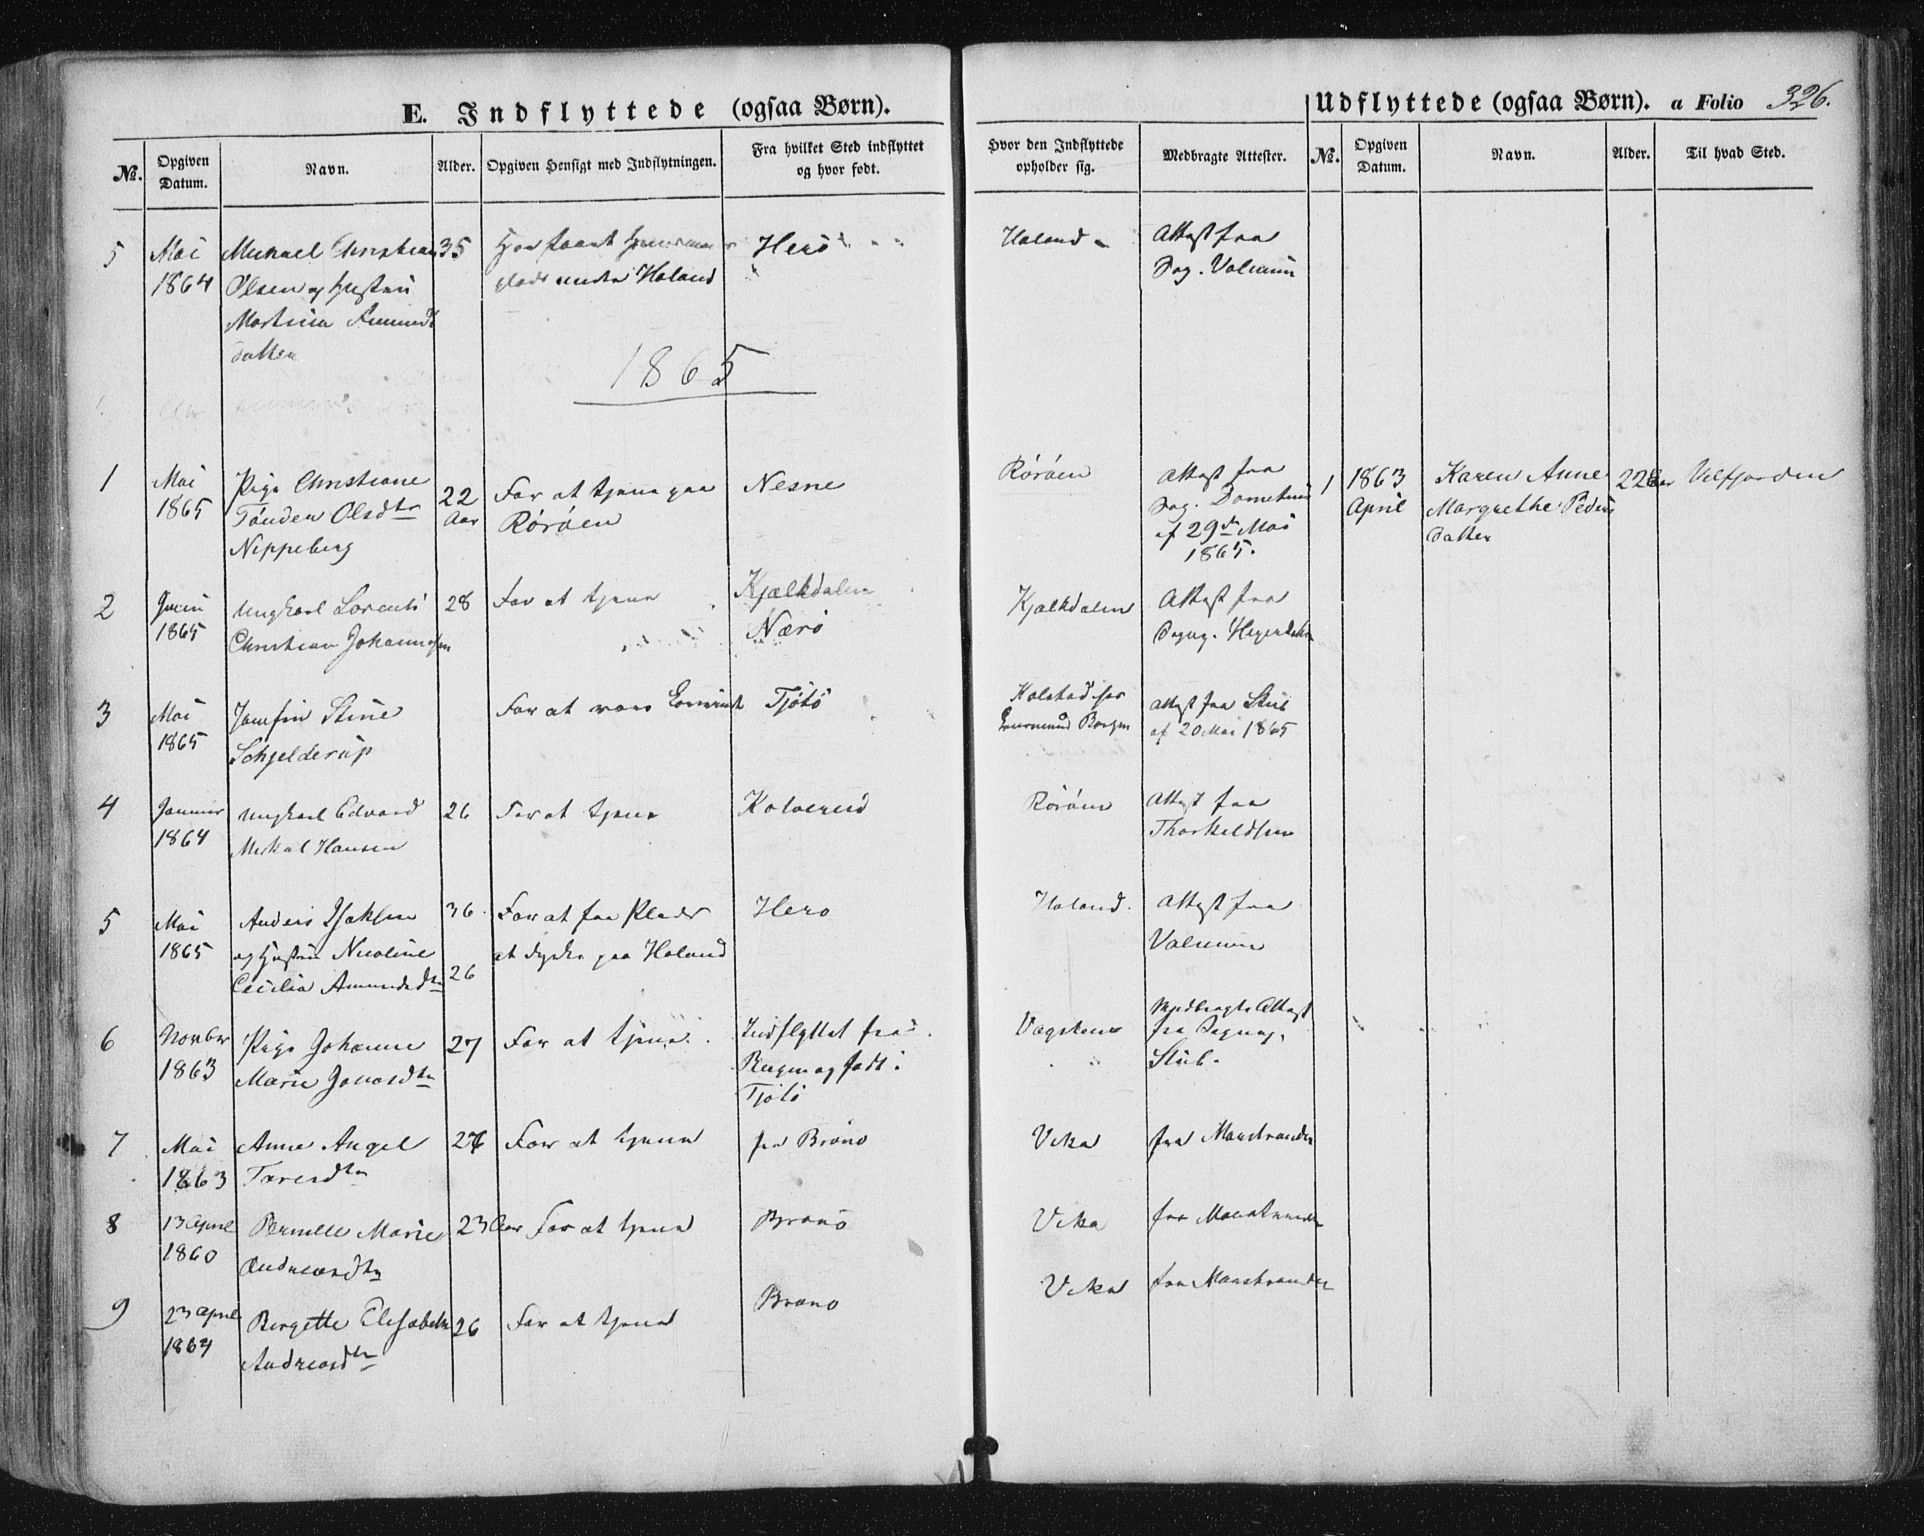 E. Indflyttede (ogsaa Børn).
Udflyttede (ogsaa Børn). a Folio 326.
No. Opgiven Datum. Navn. Alder. Opgiven Hensigt med Indflytningen. Fra hvilket Sted indflyttet og hvor født.
Hvor den Indflyttede opholder sig. Medbragte Attester. No. Opgiven Datum. Navn. Alder. Til hvad Sted.
5 Mai Michael Christian 35 Herö Haland Attest fra
1864 Olsen og Hustru plads under Haland
Martina
datter
1865
1 Mai Pige Christiane 22 For at tjene paa Nesne Röröen Attest fra
1865 Tönder Olsdtr Aar Röröen
Nippeberg af 29de Mai
1865.
1 1863 Karen Anne 22 Aar Velfjorden
April Margrethe Peders
datter
2 Juni Ungkarl Lorents 28 For at tjene Kjælkdalen Kjælkdalen Attest fra
1865 Christian Johannessen Nærö
3 Mai Josefin Stine For at være Tjötö Attest fra Stub
1865 Schjelderup af 20 Mai 1865
4 Januar Ungkarl Edvard 26 For at tjene Kolvereid Röröen Attest fra
1864 Mikal Hansen Thorkeldsen
5 Mai Anders Isaksen 36 For at faa Plads Herö Haland. Attest fra
1865 og Hustru Nicoline at dyrke paa Haland
Cecilia Amundsdtr 26
6 Novbr Pige Johanne 27 For at tjene Indflyttet fra Medbragte Attest
1863 Marie Jonasdtr og født i fra
Tjötö Stub.
7 Mai Anne Angel For at tjene fra Brönö Vika fra
1863
8 13 April Pernille Marie 23 Aar For at tjene Brönö Vika fra
1860 Andreasdtr
9 23 April Bergette Elisabeth 26 For at tjene Brönö Vika fra
1864 Andreasdtr